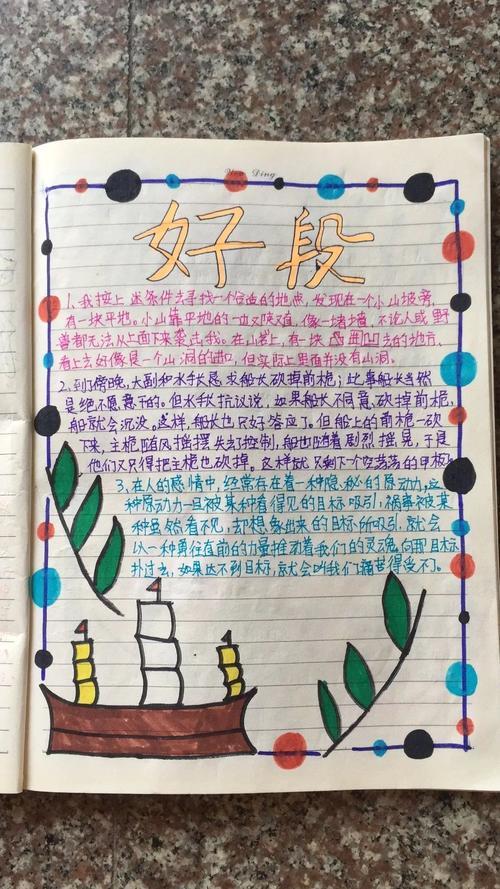 Ding
好段
1.我按上述条件去寻找一个合适的地点,发现在一个小山坡旁,
有一块平地。小山靠平地的一边又陡又直,像一堵墙,不论人或野
兽都无法从上面下来袭过我。在山岩上,有一块凹进去的地方,
看上去好像是一个山洞的进口,但实际上里面并没有山洞。
2.到了傍晚,大副和水手长恳求船长砍掉前桅;此事船长当然
是绝不愿意干的。但水手长抗议说,如果船长不同意砍掉前桅,
船就会沉没。这样,船长也只好答应了。但船上的前桅一砍
下来,主桅随风摇摆失去控制,船也随着剧烈摇晃,于是
他们又只得把主桅也砍掉。这样就只剩下一个空荡荡的甲板
3.在人的感情中,经常存在着一种隐秘的原动力,这
种原动力一旦被某种看得见的目标吸引,祸事被某
种虽然看不见,却想象出来的目标所吸引,就会
以一种勇往直前的力量推动着我们的灵魂向那目标
扑过去,如果达不到目标,就会叫我们痛苦得受不了。